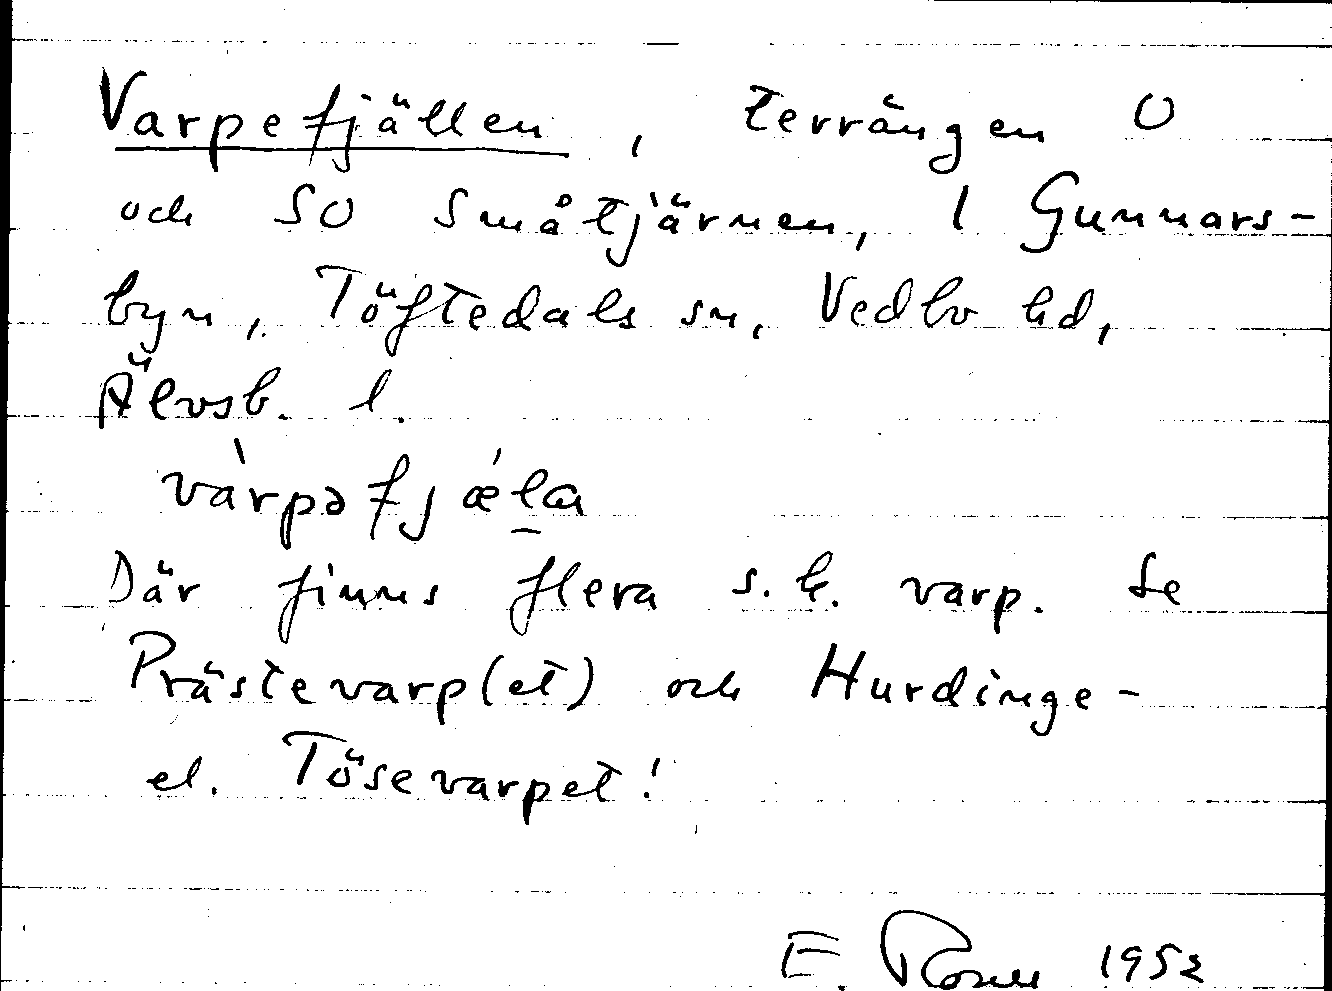 Varpefjällen, terrängen O
och SO Småtjärnen, 1 Gunnars-
byn, Töftedals sn, Vedbo hd,
Älvsb. l.
vàrpəfjǽla
Där finns flera s.k. varp. Se
Prästevarp(et) och Hurdinge-
el. Tösevarpet!
E. 1952